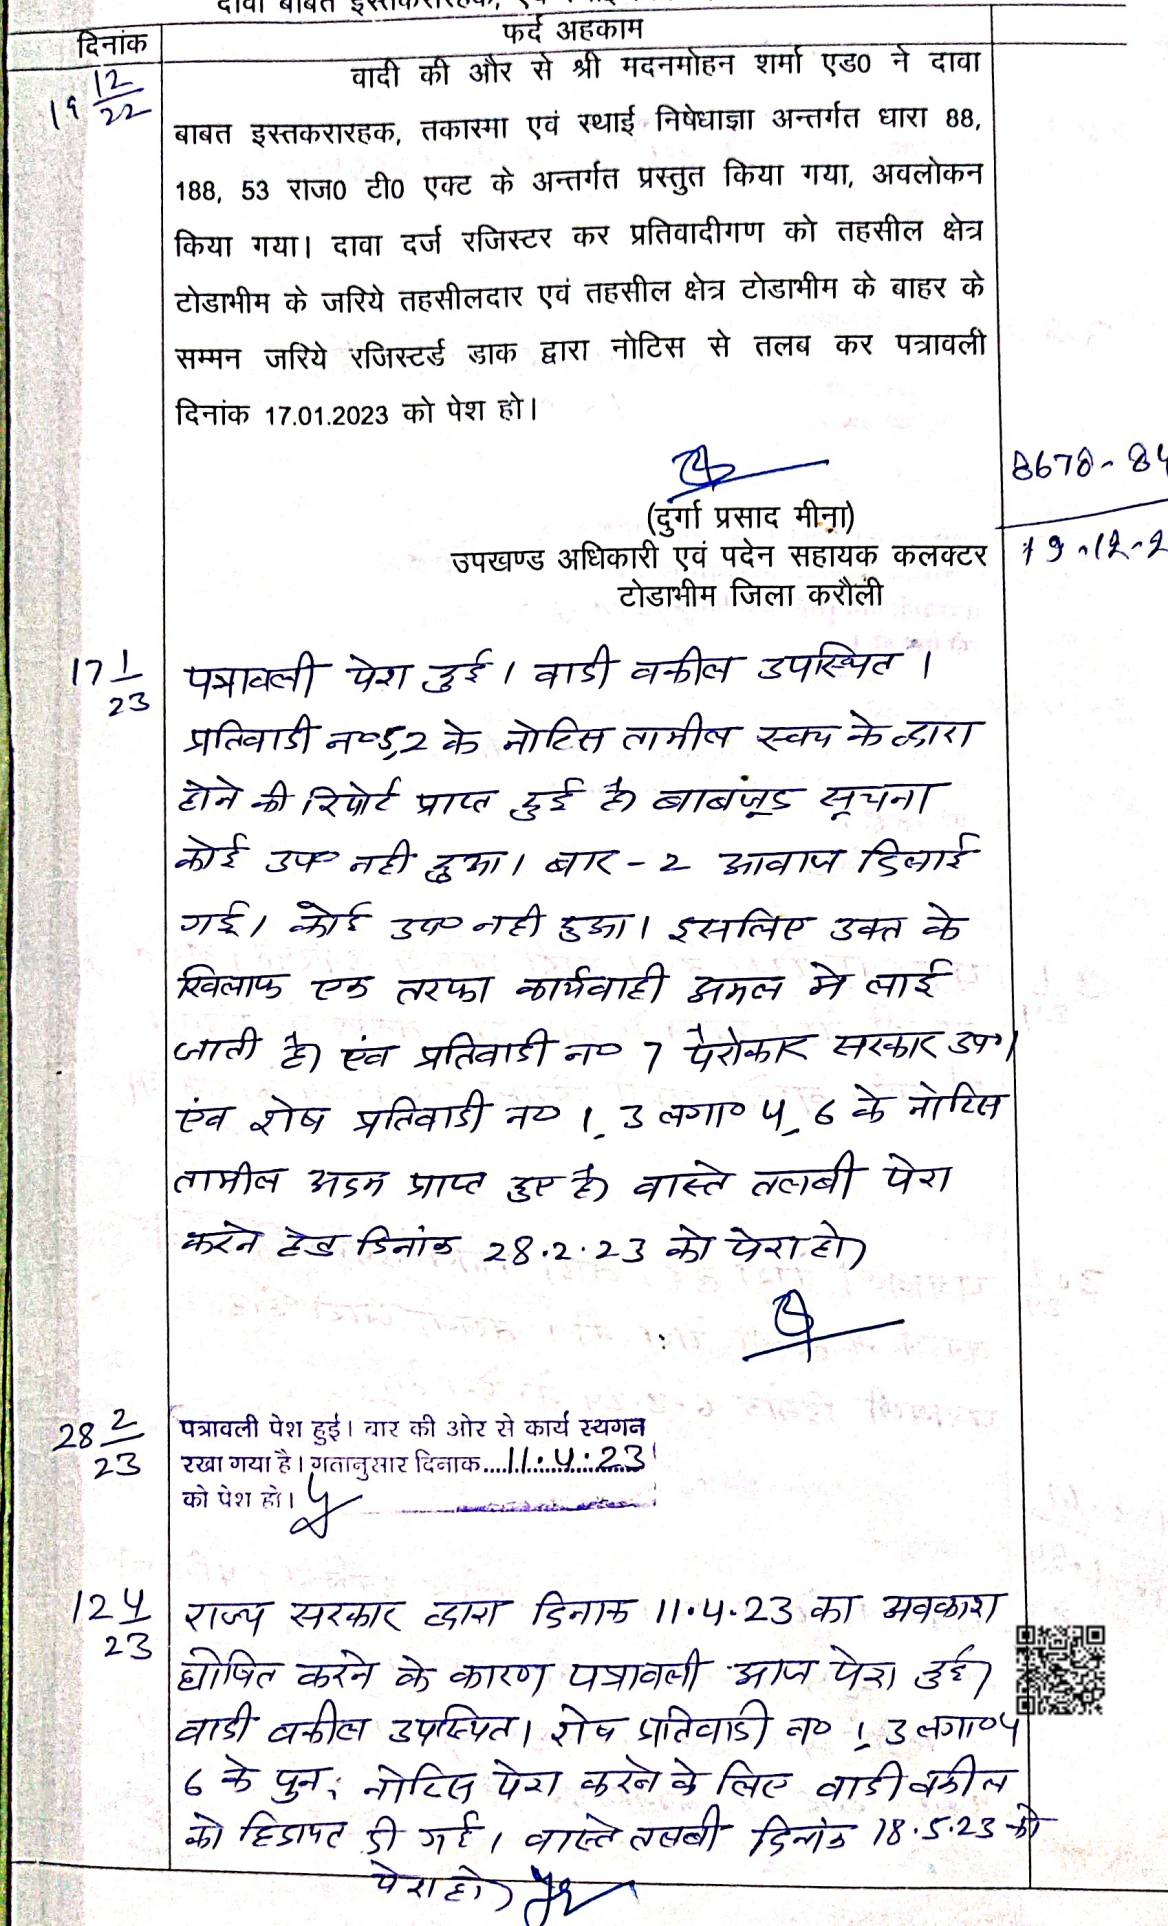 दावा बाबत इस्तकरारहक,
दिनांक
फर्द अहकाम
19 12/22
वादी की और से श्री मदनमोहन शर्मा एड0 ने दावा
बाबत इस्तकरारहक, तकास्मा एवं स्थाई निषेधाज्ञा अन्तर्गत धारा 88,
188, 53 राज0 टी0 एक्ट के अन्तर्गत प्रस्तुत किया गया, अवलोकन
किया गया। दावा दर्ज रजिस्टर कर प्रतिवादीगण को तहसील क्षेत्र
टोडाभीम के जरिये तहसीलदार एवं तहसील क्षेत्र टोडाभीम के बाहर के
सम्मन जरिये रजिस्टर्ड डाक द्वारा नोटिस से तलब कर पत्रावली
दिनांक 17.01.2023 को पेश हो।
8678-84
19-12-2
(दुर्गा प्रसाद मीना)
उपखण्ड अधिकारी एवं पदेन सहायक कलक्टर
टोडाभीम जिला करौली
17 1/23
पत्रावली पेश हुई। वादी वकील उपस्थित।
प्रतिवादी न० 5,2 के नोटिस तामील स्वयं के द्वारा
होने की रिपोर्ट प्राप्त हुई है। बाबजूद सूचना
कोई उप० नही हुआ। बार-2 आवाज दिलाई
गई। कोई उप० नही हुआ। इसलिए उक्त के
खिलाफ एक तरफा कार्यवाही अमल मे लाई
जाती है। एंव प्रतिवादी न० 7 पैरोकार सरकार उप०।
एंव शेष प्रतिवादी न० 1, 3 लगा० 4, 6 के नोटिस
तामील अदम प्राप्त हुए है। वास्ते तलबी पेश
करने हेतु दिनांक 28.2.23 को पेश हो।
28 2/23
पत्रावली पेश हुई। वार की ओर से कार्य स्थगन
रखा गया है। गतानुसार दिनाक....11.4.23
को पेश हो।
12 4/23
राज्य सरकार द्वारा दिनाक 11.4.23 का अवकाश
घोषित करने के कारण पत्रावली आज पेश हुई।
वादी वकील उपस्थित। शेष प्रतिवादी न० 1, 3 लगा० 4
6 के पुन: नोटिस पेश करने के लिए वादी वकील
को हिदायत दी गई। वास्ते तलबी दिनांक 18.5.23 को
पेश हो।